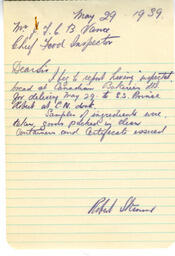 May 29 1939.
Mr J. F. C. B. Vance
Chief Food Inspector
Dear Sir
I beg to report having inspected
bread at Canadian Bakeries Ltd
for delivery May 29 to S.S. Prince
Robert at C.N. dock.
Samples of ingredients were
taken, goods packed in clean
containers and Certificate issued
Robert